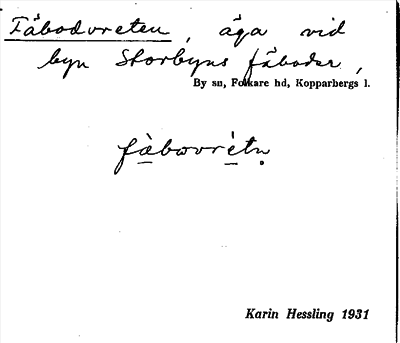 Fäbodvreten, äga vid
byn Storbyns fäboder,
By sn, Folkare hd, Kopparbergs l.
fàbωvrètn̥
Karin Hessling 1931